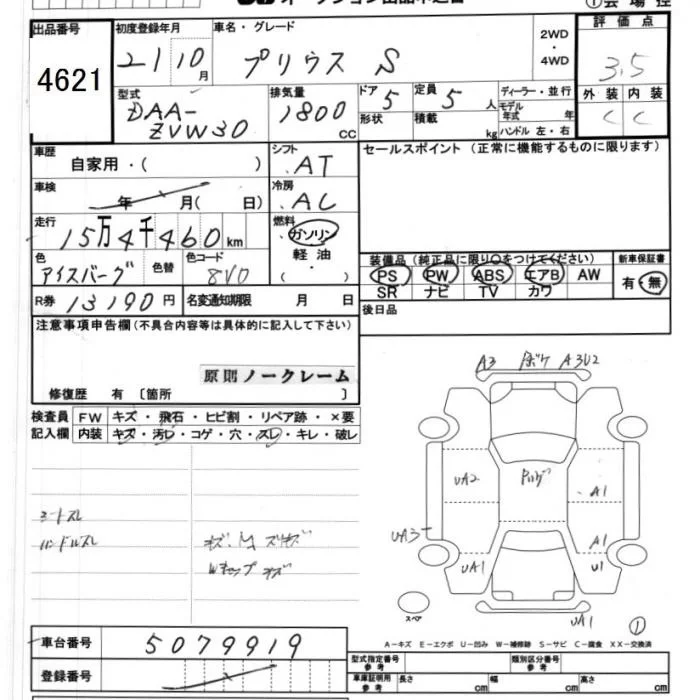 ①会場控
出品番号
4621
初度登録年月
21 10月
車名・グレード
プリウス S
2WD・4WD
評価点
3.5
型式
DAA-ZVW30
排気量
1800 CC
ドア 5
形状
定員 5人
積載 kg
ディーラー・並行
モデル年式 年
ハンドル 左・右
外装 内装
C C
車歴
自家用・( )
シフト
AT
セールスポイント (正常に機能するものに限ります)
車検
年 月( 日)
冷房
AC
走行
15万4千460km
燃料
ガソリン
軽油
・( )
色
アイスバーグ
色替
色コード
8V0
装備品 (純正品に限り○をつけてください)
PS PW ABS エアB AW
SR ナビ TV カワ
新車保証書
有・無
R券 13190円
名変通知期限 月 日
後日品
注意事項申告欄(不具合内容等は具体的に記入して下さい)
原則ノークレーム
修復歴 有 〔箇所 〕
検査員
記入欄
FW キズ・飛石・ヒビ割・リペア跡・×要
内装 キズ・汚レ・コゲ・穴・スレ・キレ・破レ
シートスレ
ハンドルスレ
Wキャップキズ
A3 ボケ A3U2
UA2
A1
UA3
A1
UA1
U1
スペア
UA1
①
A-キズ E-エクボ U-凹み W-補修跡 S-サビ C-腐食 XX-交換済
車台番号 5079919
登録番号
型式指定番号 参考
類別区分番号 参考
車庫証明用 参考
長さ cm
幅 cm
高さ cm